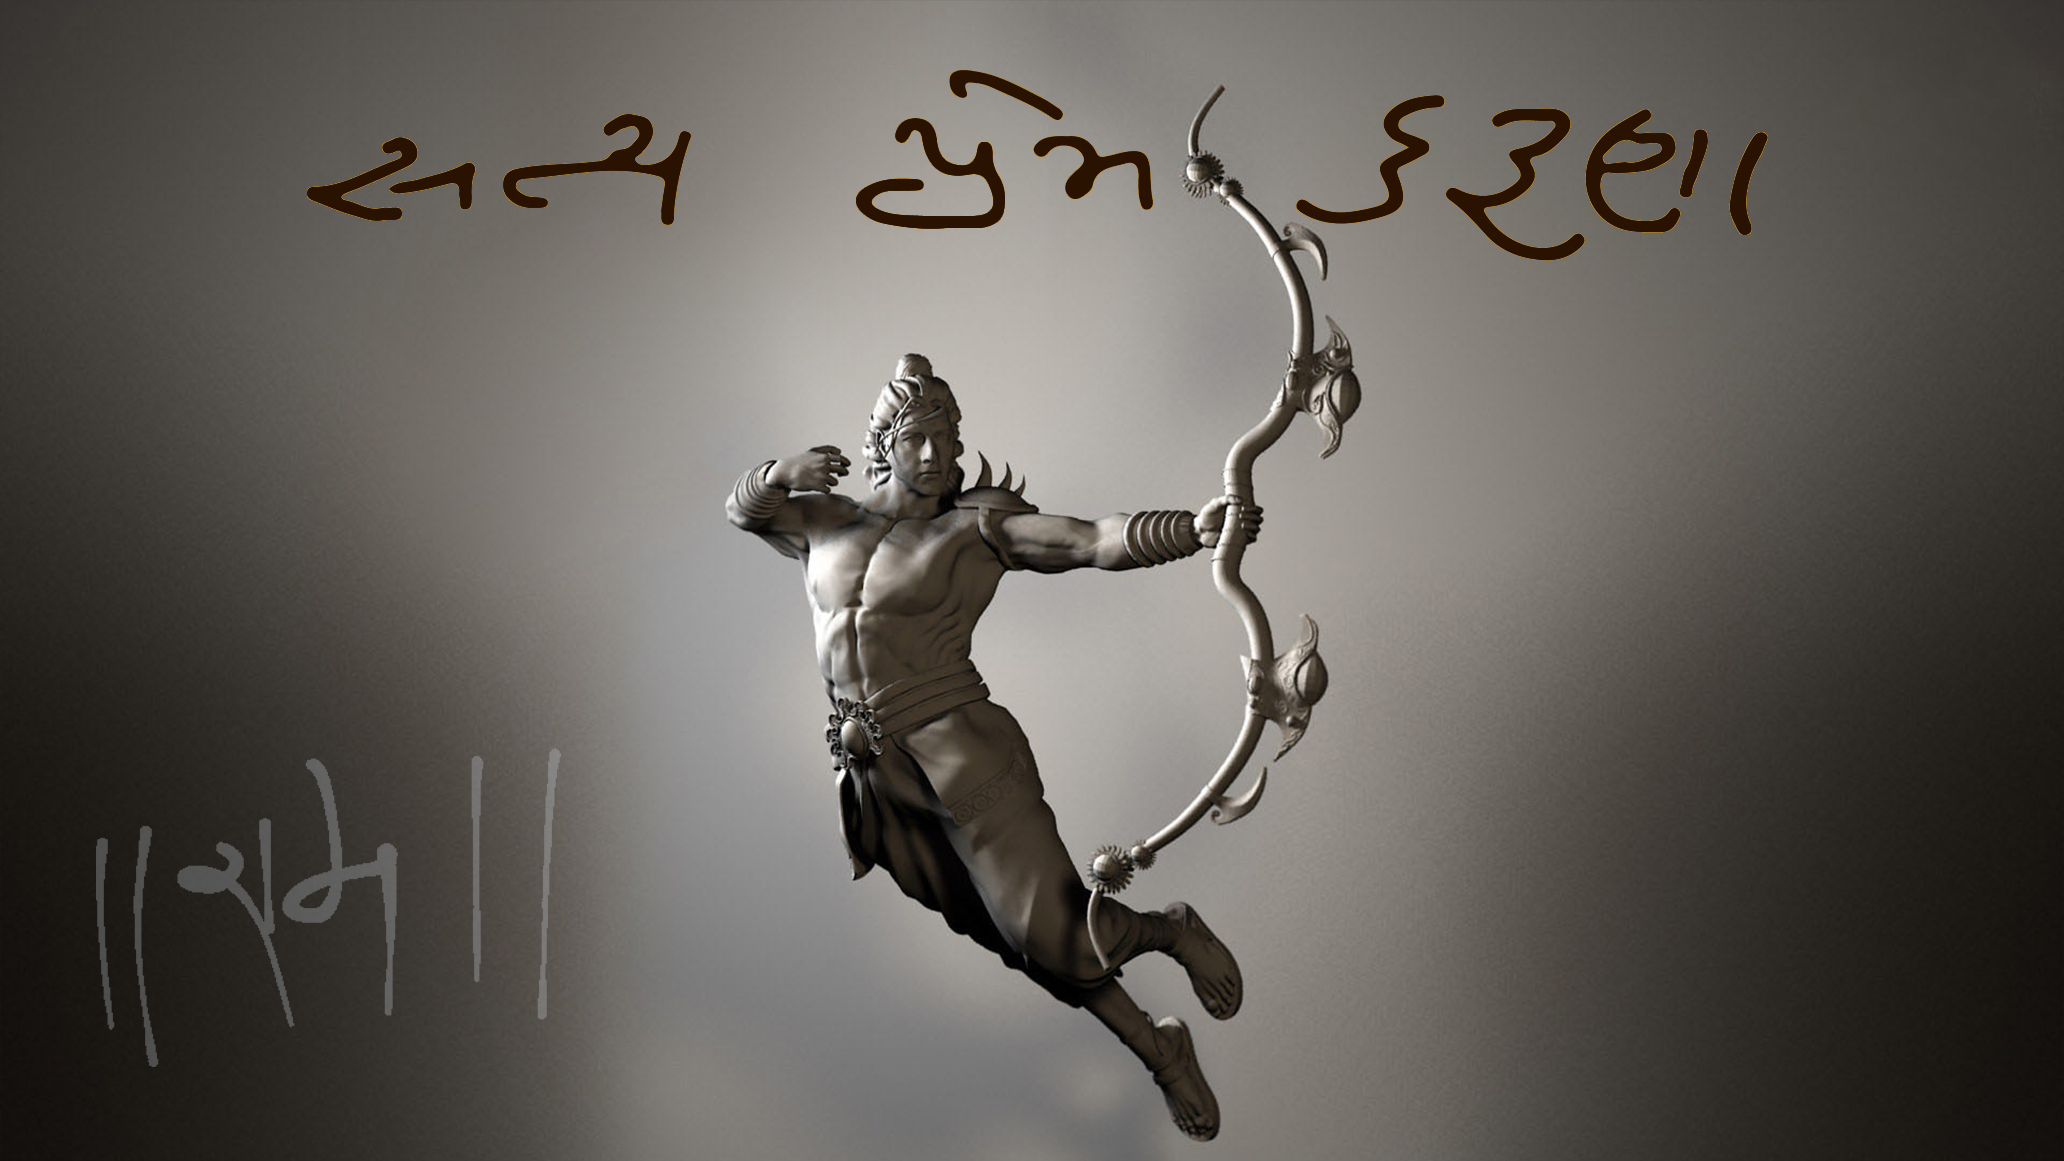 સત્ય પ્રેમ કરુણા
॥રામ॥